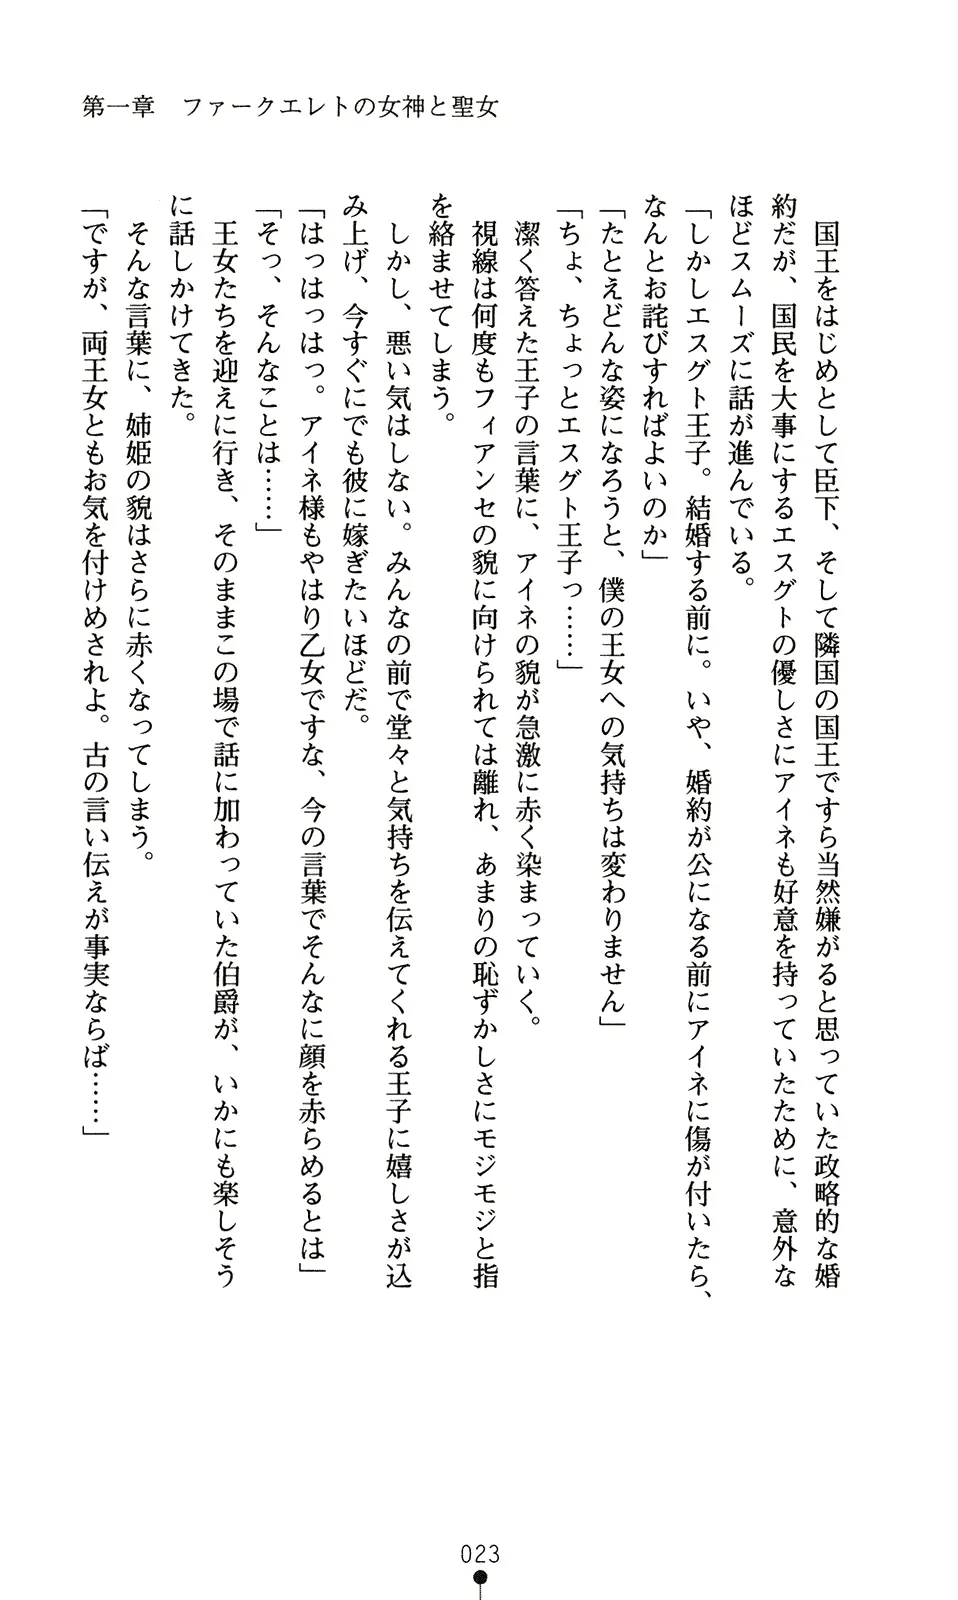 第一章　ファークエレトの女神と聖女
　国王をはじめとして臣下、そして隣国の国王ですら当然嫌がると思っていた政略的な婚
約だが、国民を大事にするエスグトの優しさにアイネも好意を持っていたために、意外な
ほどスムーズに話が進んでいる。
「しかしエスグト王子。結婚する前に。いや、婚約が公になる前にアイネに傷が付いたら、
なんとお詫びすればよいのか」
「たとえどんな姿になろうと、僕の王女への気持ちは変わりません」
「ちょ、ちょっとエスグト王子っ……」
　潔く答えた王子の言葉に、アイネの貌が急激に赤く染まっていく。
　視線は何度もフィアンセの貌に向けられては離れ、あまりの恥ずかしさにモジモジと指
を絡ませてしまう。
　しかし、悪い気はしない。みんなの前で堂々と気持ちを伝えてくれる王子に嬉しさが込
み上げ、今すぐにでも彼に嫁ぎたいほどだ。
「はっはっはっ。アイネ様もやはり乙女ですな、今の言葉でそんなに顔を赤らめるとは」
「そっ、そんなことは……」
　王女たちを迎えに行き、そのままこの場で話に加わっていた伯爵が、いかにも楽しそう
に話しかけてきた。
　そんな言葉に、姉姫の貌はさらに赤くなってしまう。
「ですが、両王女ともお気を付けめされよ。古の言い伝えが事実ならば……」
023